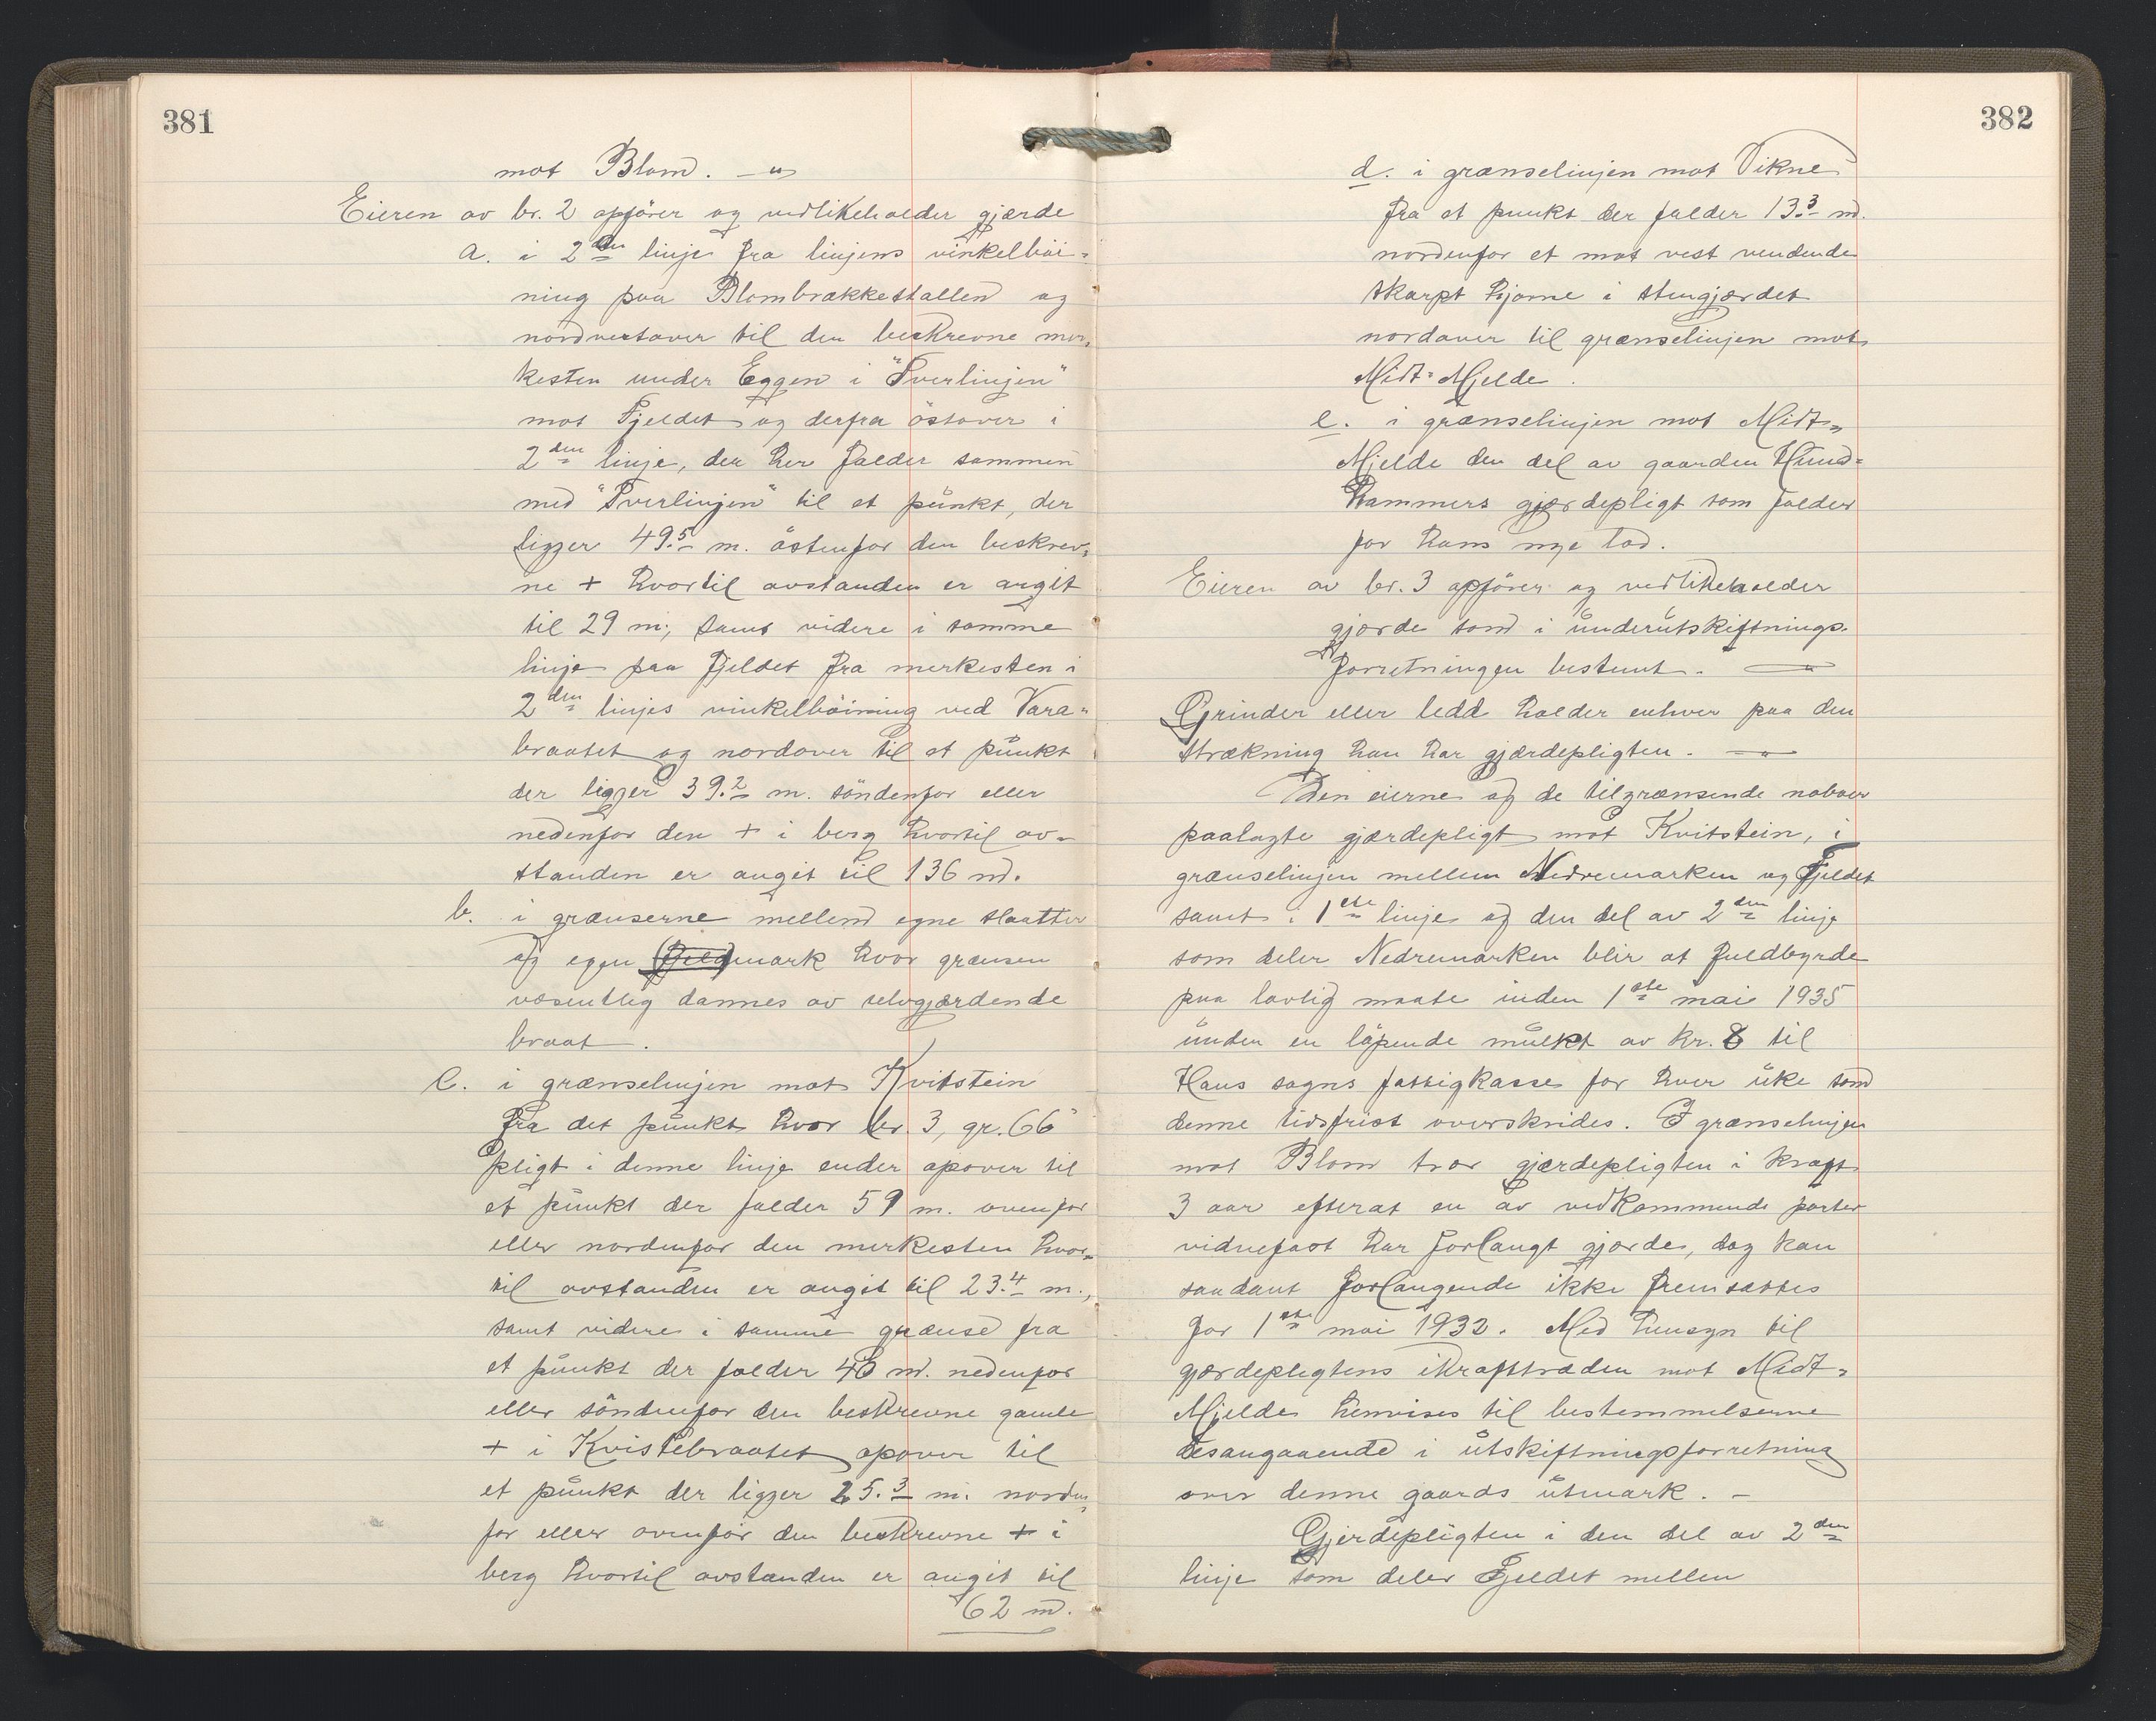 381
mot Blom. -"-
Eieren av br. 2 opfører og vedlikeholder gjærde
a. i 2den linje fra linjens vinkelbøi-
ning paa Blombrækkestallen og
nordvestover til den beskrevne mer-
kesten under Eggen i "Tverlinjen"
mot Fjeldet og derfra østover i
2den linje, der her falder sammen
med "Tverlinjen" til et punkt, der
ligger 49.5 m. østenfor den beskrev-
ne + hvortil avstanden er angit
til 29 m., samt videre i samme
linje paa Fjeldet fra merkesten i
2den linjes vinkelbøining ved Vara-
braatet og nordover til et punkt
der ligger 39.2 m. søndenfor eller
nedenfor den + i berg hvortil av-
standen er angit til 136 m.
b. i grænserne mellem egne slaatter
og egen (Fjeld)mark hvor grænsen
væsentlig dannes av selvgjærdende
braat.
c. i grænselinjen mot Kvitstein
fra det punkt hvor br. 3, gr. 66
pligt i denne linje ender opover til
et punkt der falder 59 m. ovenfor
eller nordenfor den merkesten hvor-
til avstanden er angit til 23.4 m.,
samt videre i samme grænse fra
et punkt der falder 40 m. nedenfor
eller søndenfor den beskrevne gamle
+ i Kvistebraatet opover til
et punkt der ligger 25.3 m. norden-
for eller ovenfor den beskrevne + i
berg hvortil avstanden er angit til
62 m.
382
d. i grænselinjen mot Vikne
fra et punkt der falder 13.3 m.
nordenfor et mot vest vendende
skarpt hjørne i stengjærdet
nordover til grænselinjen mot
Midt-Mjelde.
e. i grænselinjen mot Midt-
Mjelde den del av gaarden Hund-
hammers gjærdepligt som falder
for hans nye lod.
Eieren av br. 3 opfører og vedlikeholder
gjærde som i underutskiftnings-
forretningen bestemt. -"-
Grinder eller ledd holder enhver paa den
strækning han har gjærdepligten. -"-
Den eierne og de tilgrænsende naboer
paalagte gjærdepligt mot Kvitstein, i
grænselinjen mellem Nedremarken og Fjeldet
samt i 1ste linje og den del av 2den linje
som deler Nedremarken blir at fuldbyrde
paa lovlig maate inden 1ste mai 1935
under en løpende mulkt av kr. 8 til
Haus sogns fattigkasse for hver uke som
denne tidsfrist overskrides. I grænselinjen
mot Blom trær gjærdepligten i kraft
3 aar efterat en av vedkommende parter
vidnefast har forlangt gjærde, dog kan
saadant forlangende ikke fremsættes
før 1ste mai 1932. Med hensyn til
gjærdepligtens ikrafttræden mot Midt-
Mjelde henvises til bestemmelserne
desangaaende i utskiftningsforretning
over denne gaards utmark. -
Gjerdepligten i den del av 2den
linje som deler Fjeldet mellem